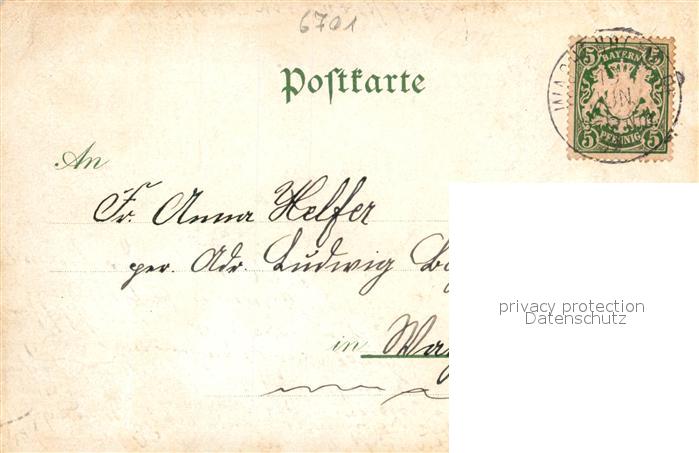 6701
Postkarte
5 BAYERN 5
JUN
5 PFENNIG 5
An
Fr. Anna Helfer
per. Adr. Ludwig
in
privacy protection
Datenschutz